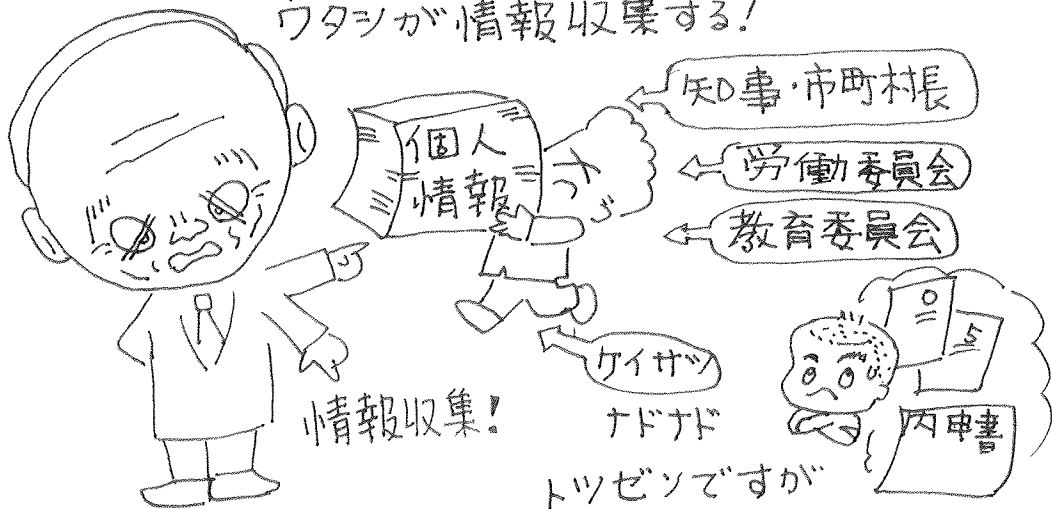 ワタシが情報収集する!
個人
情報
知事・市町村長
労働委員会
教育委員会
ケイサツ
ナドナド
情報収集!
0
5
内申書
トツゼンですが